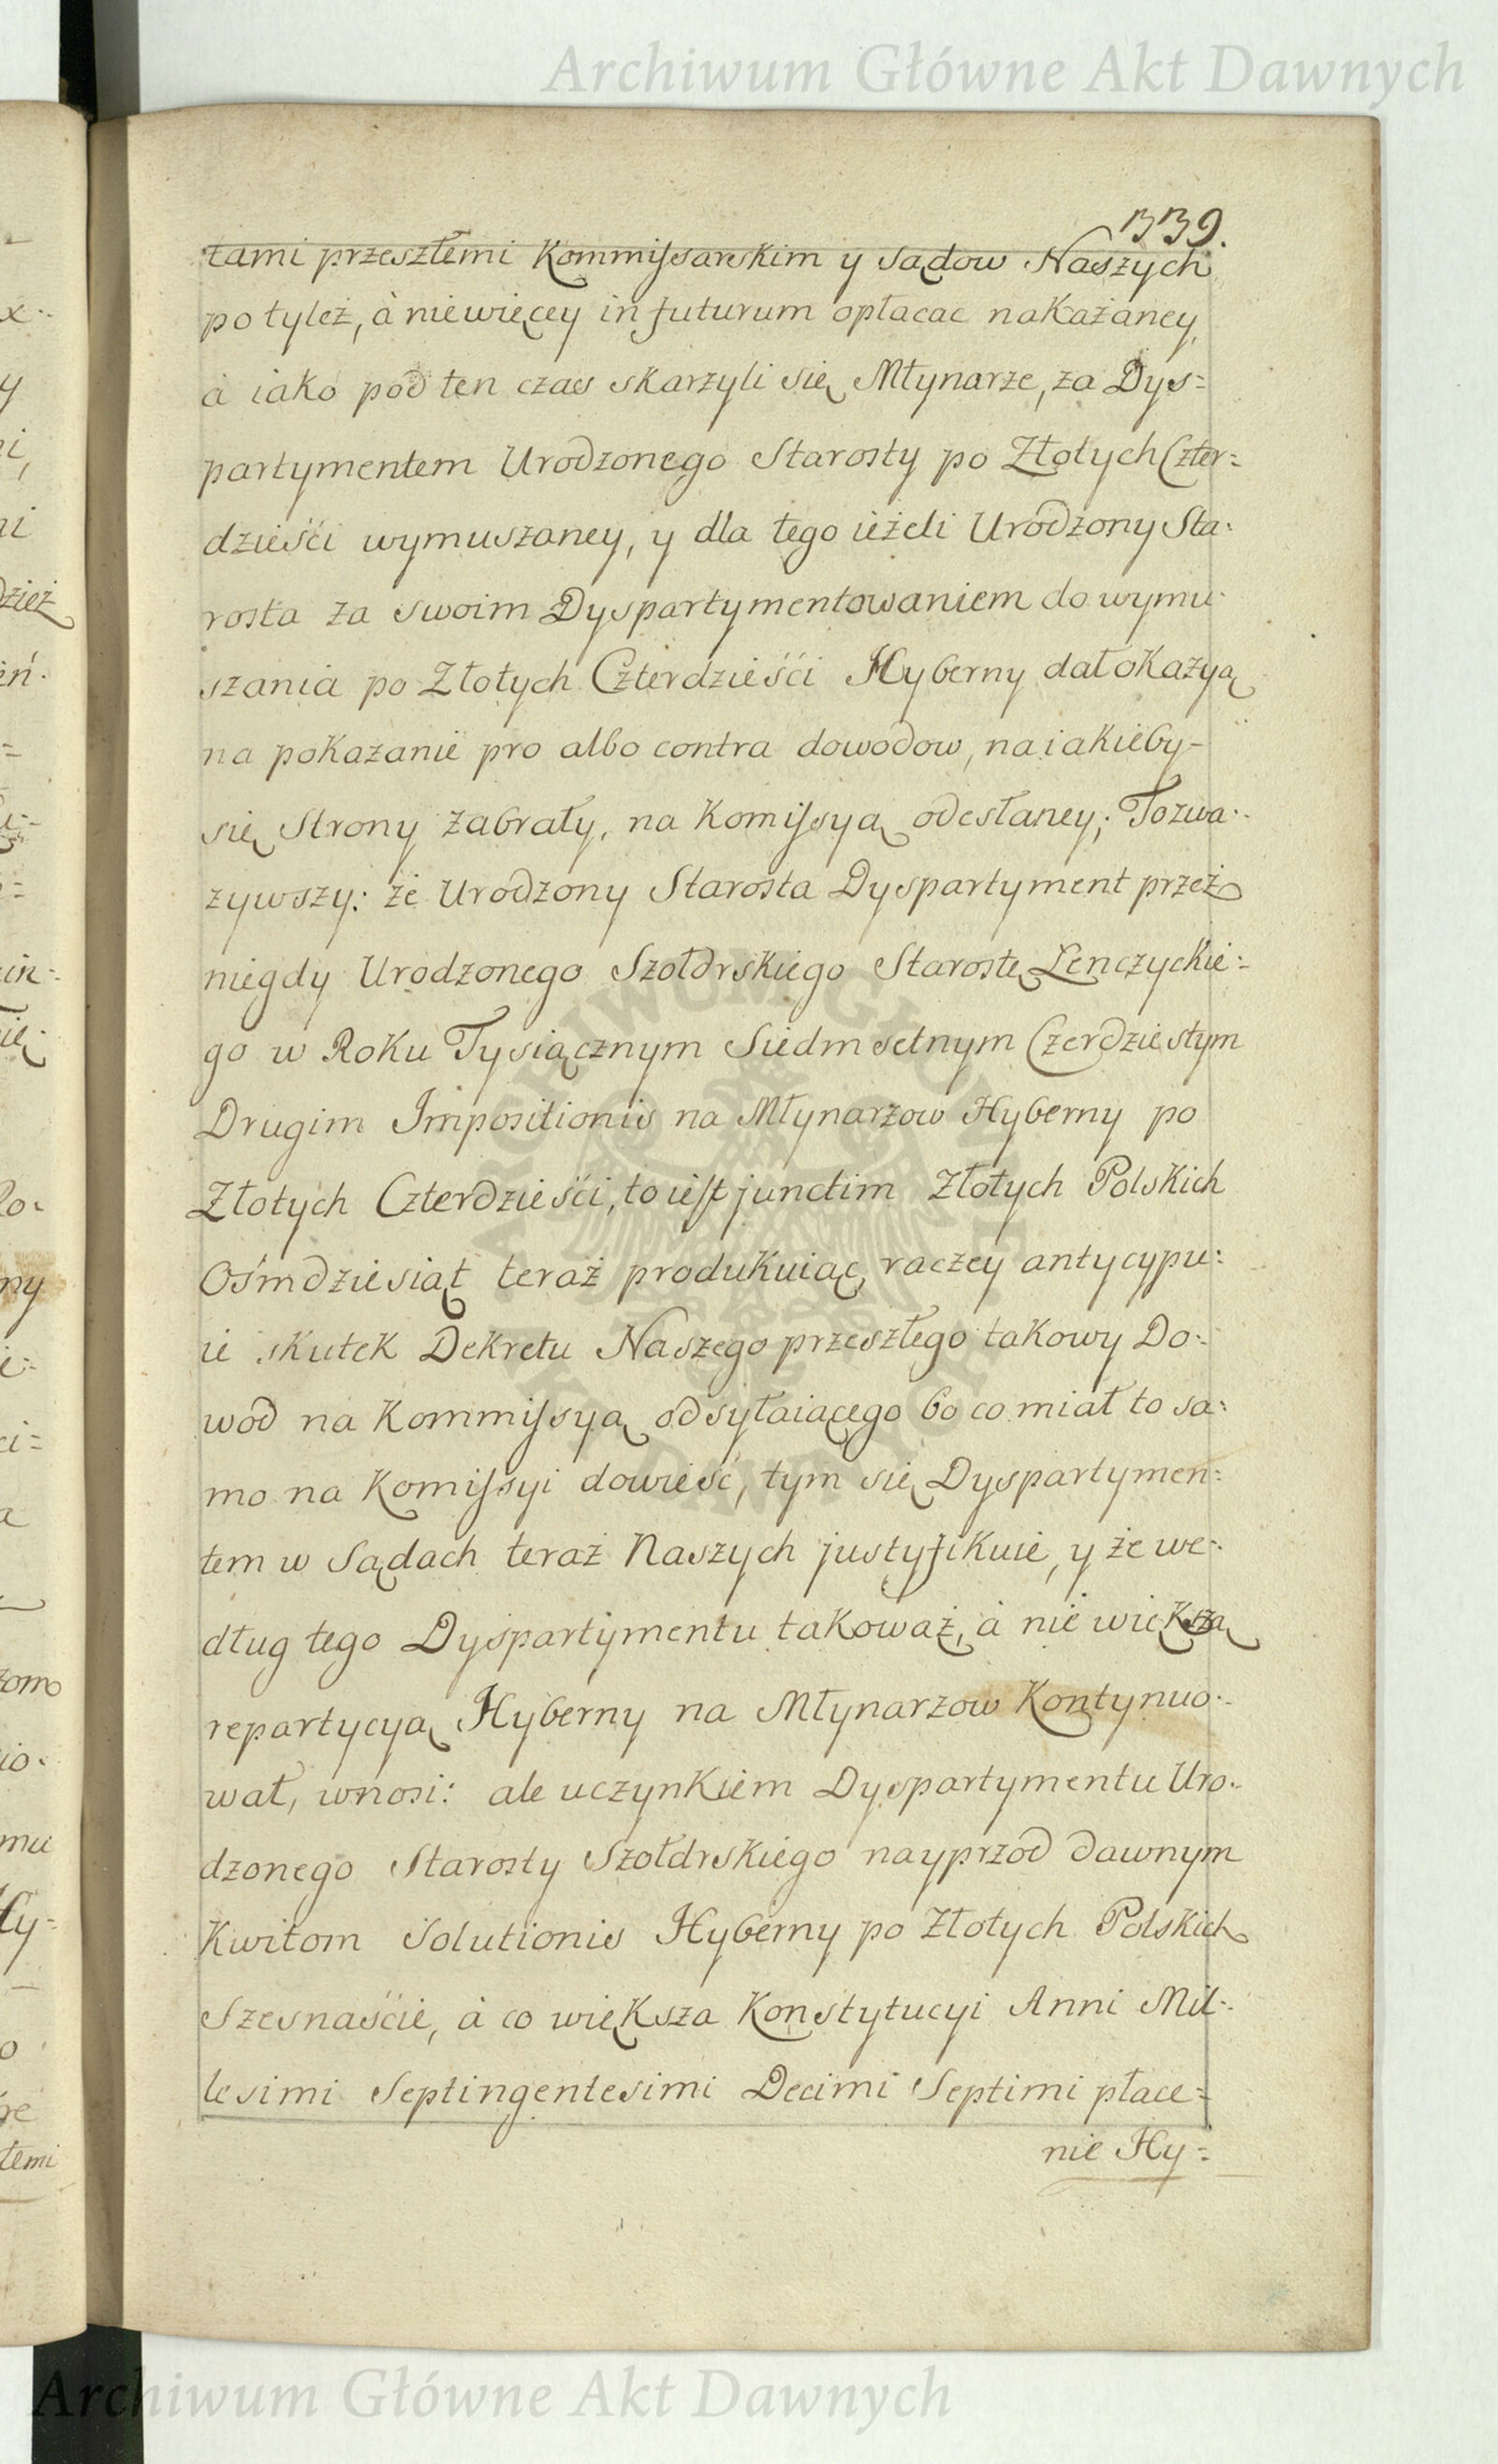 Archiwum Główne Akt Dawnych
339.
tami przeszłemi Kommissarskim y sądow Naszych
po tyleż, à niewięcey in futurum opłacac nakażaney,
à iako pod ten czas skarzyli się Młynarze, za Dys=
partymentem Urodzonego Starosty po Złotych Czter=
dzieści wymuszaney, y dla tego ieżeli Urodzony Sta:
rosta za swoim Dyspartymentowaniem do wymu:
szania po Złotych Czterdzieści Hyberny dał okazyą
na pokazanie pro albo contra dowodow, na iakieby-
się Strony zabrały, na Komissyą odesłaney; To zwa:
zywszy: że Urodzony Starosta Dyspartyment przez
niegdy Urodzonego Szołdrskiego Starostę Lenczyckie:
go w Roku Tysiącznym Siedmsetnym Czerdziestym
Drugim Impositionis na Młynarzow Hyberny po
Złotych Czterdzieści, to iest junctim Złotych Polskich
Ośmdziesiąt teraż produkuiąc, raczey antycypu:
ie skutek Dekretu Naszego przeszłego takowy Do:
wod na Kommissyą odsyłaiącego bo co miał to sa:
mo na Komissyi dowieść, tym się Dyspartymen:
tem w Sądach teraż Naszych justyfikuie, y że we:
dług tego Dyspartymentu takoważ, à nie większą
repartycyą Hyberny na Młynarzow Kontynuo:
wał, wnosi: ale uczynkiem Dyspartymentu Uro:
dzonego Starosty Szołdrskiego nayprzod dawnym
Kwitom Solutionis Hyberny po Złotych Polskich
Szesnaście, à co większa Konstytucyi Anni Mil:
lesimi Septingentesimi Decimi Septimi płace=
nie Hy=
Archiwum Główne Akt Dawnych